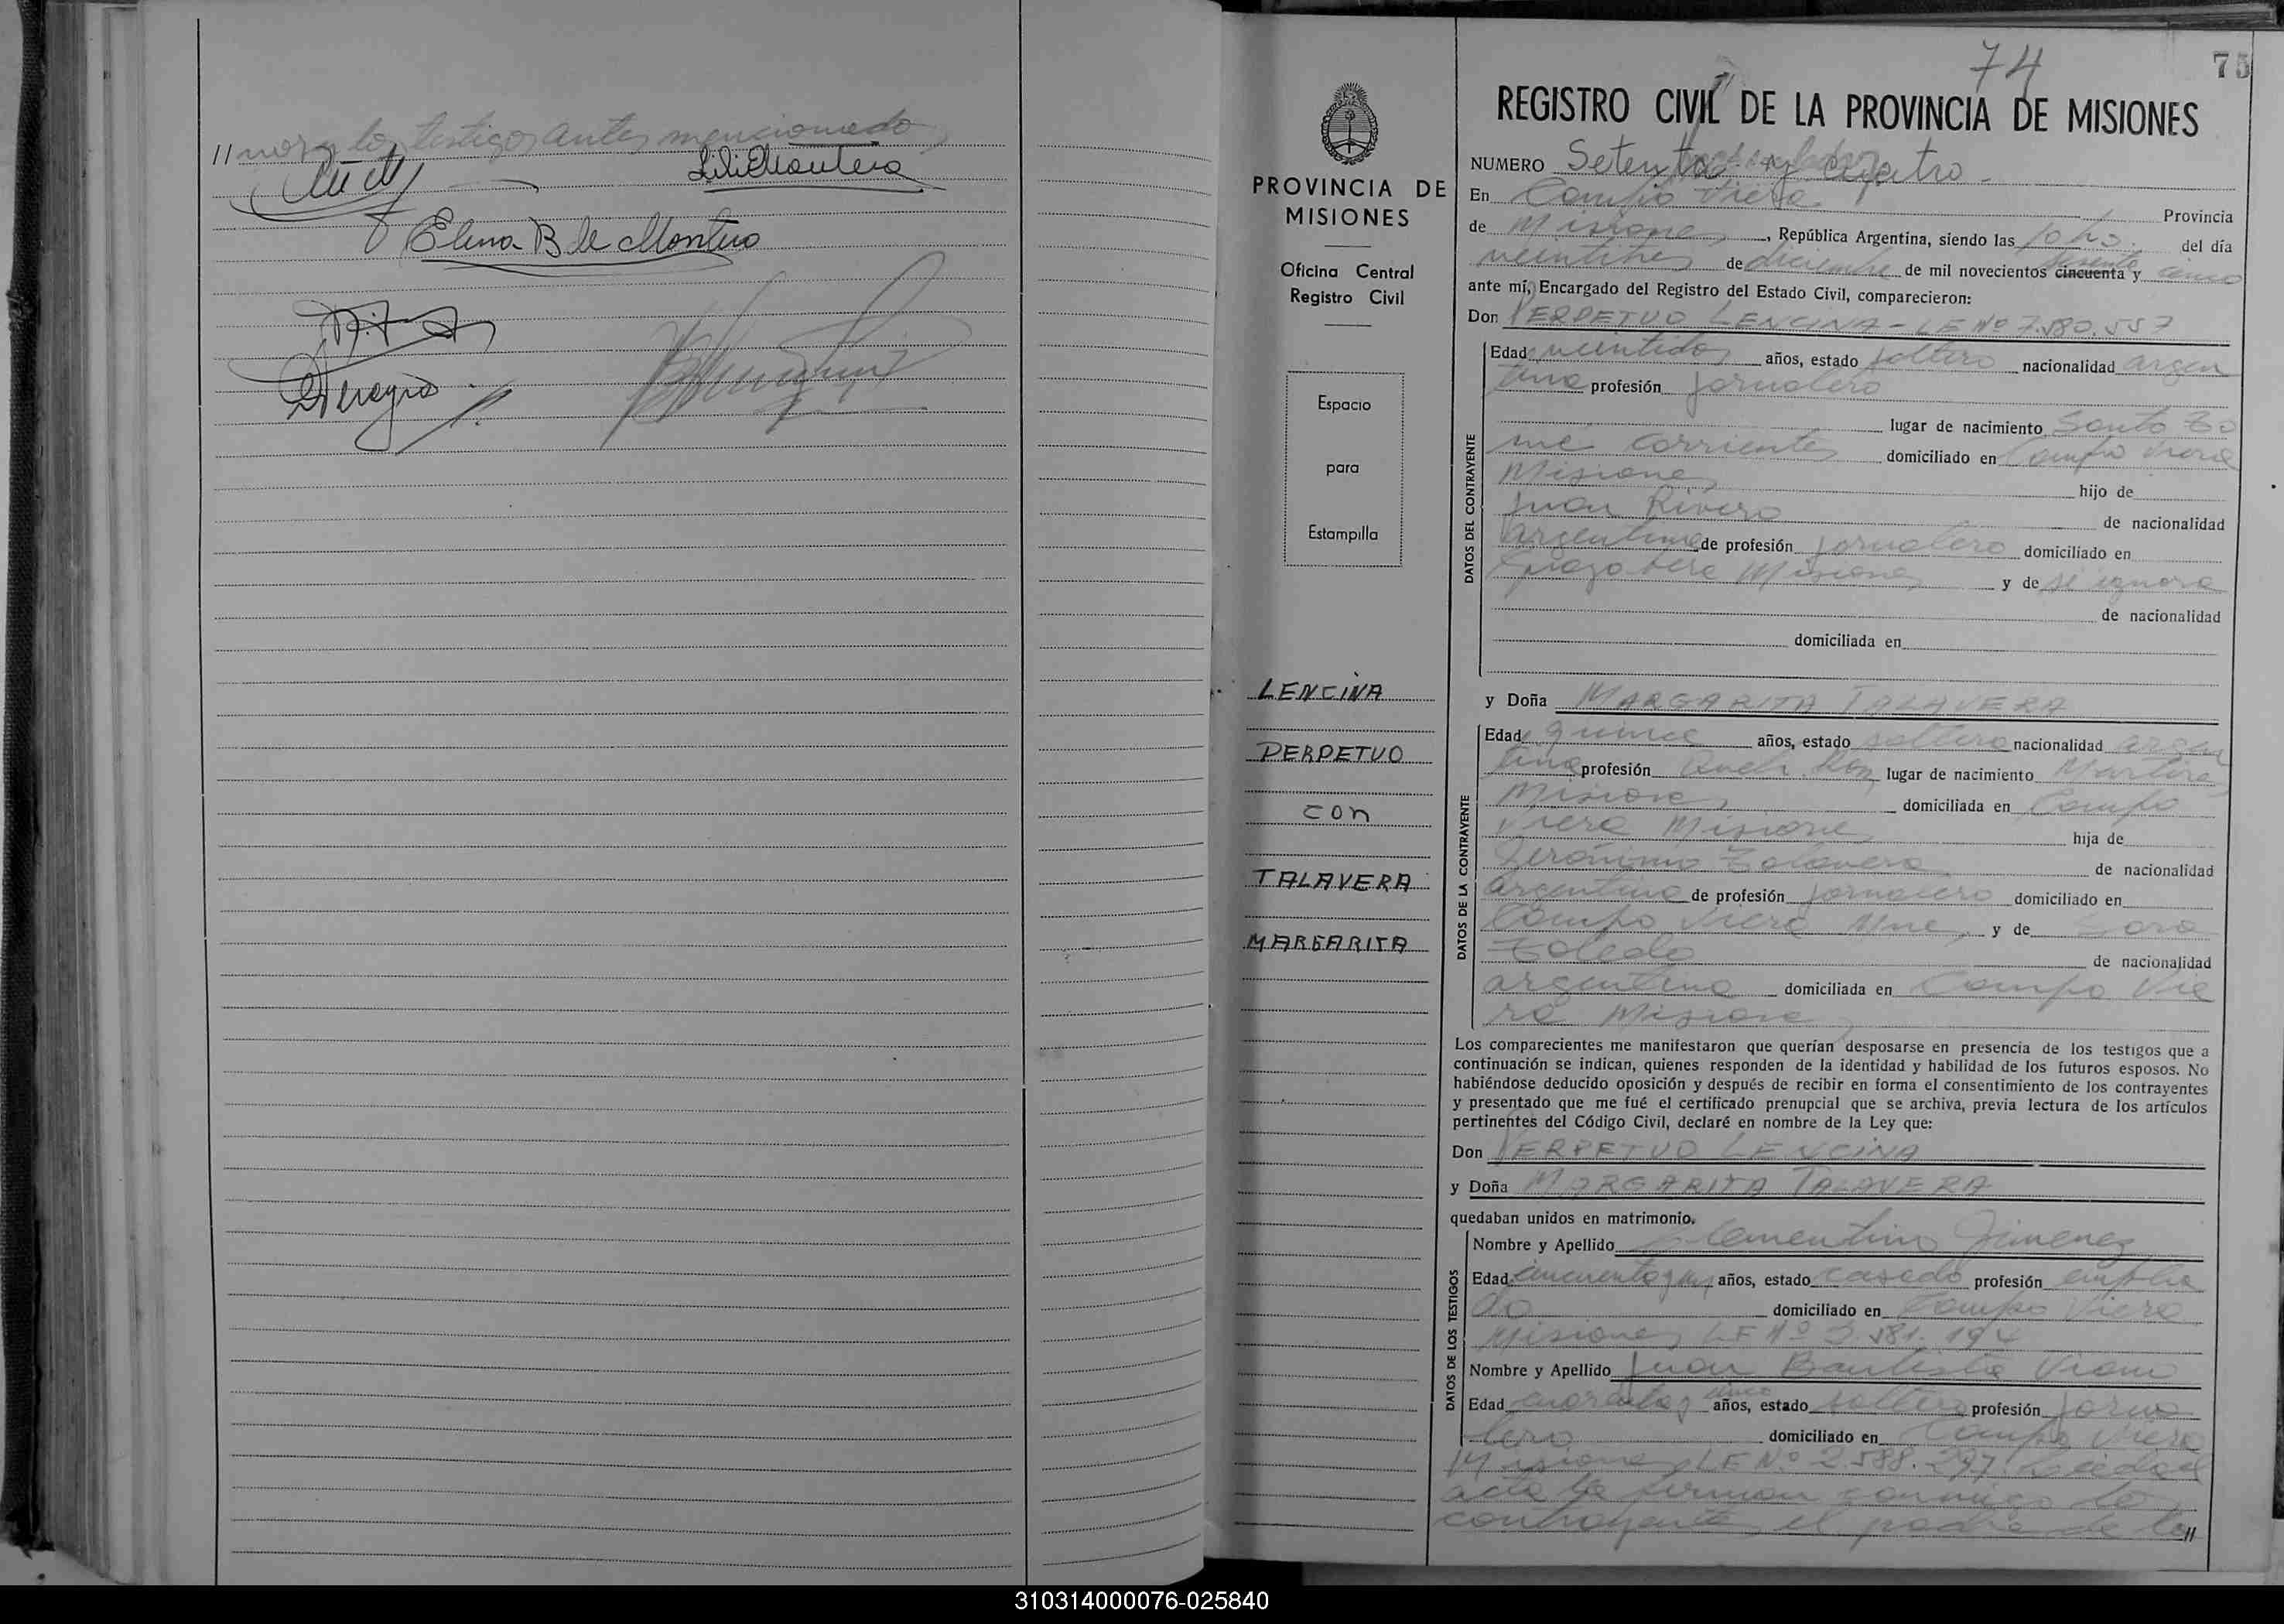 // nora los testigos antes mencionado
Elena B de Montero
74
75
REGISTRO CIVIL DE LA PROVINCIA DE MISIONES
PROVINCIA DE
MISIONES
Oficina Central
Registro Civil
Espacio
para
Estampilla
LENCINA
PERPETUO
CON
TALAVERA
MARGARITA
NUMERO Setenta y cuatro
En Campo Viera Provincia
de Misiones, República Argentina, siendo las 10 hs. del día
veintitres de diciembre de mil novecientos cincuenta y sesenta cinco
ante mí, Encargado del Registro del Estado Civil, comparecieron:
Don PERPETUO LENCINA - LE Nº 7.580.557
Edad veintidos años, estado soltero nacionalidad argen
tina profesión jornalero
lugar de nacimiento Santo To
mé Corrientes domiciliado en Campo Viera
Misiones hijo de
Juan Rivero de nacionalidad
argentina de profesión jornalero domiciliado en
Misiones y de se ignora
de nacionalidad
domiciliada en
y Doña MARGARITA TALAVERA
Edad quince años, estado soltera nacionalidad argen
tina profesión lugar de nacimiento Martires
Misiones domiciliada en Campo
Viera Misiones hija de
Gerónimo Talavera de nacionalidad
argentina de profesión jornalero domiciliado en
Campo Viera Mnes y de
Toledo de nacionalidad
argentina domiciliada en Campo Vie
ra Misiones
DATOS DEL CONTRAYENTE
DATOS DE LA CONTRAYENTE
Los comparecientes me manifestaron que querían desposarse en presencia de los testigos que a
continuación se indican, quienes responden de la identidad y habilidad de los futuros esposos. No
habiéndose deducido oposición y después de recibir en forma el consentimiento de los contrayentes
y presentado que me fué el certificado prenupcial que se archiva, previa lectura de los artículos
pertinentes del Código Civil, declaré en nombre de la Ley que:
Don PERPETUO LENCINA
y Doña MARGARITA TALAVERA
quedaban unidos en matrimonio.
DATOS DE LOS TESTIGOS
Nombre y Apellido Clementino Jimenez
Edad cincuenta y años, estado casado profesión emplea
do domiciliado en Campo Viera
Misiones LE Nº
Nombre y Apellido Juan Bautista
Edad cuarenta y cinco años, estado soltero profesión jorna
lero domiciliado en Campo Viera
Misiones LE Nº 2.588.297. Leida el
acta la firman conmigo los
contrayentes, el padre de la //
310314000076-025840